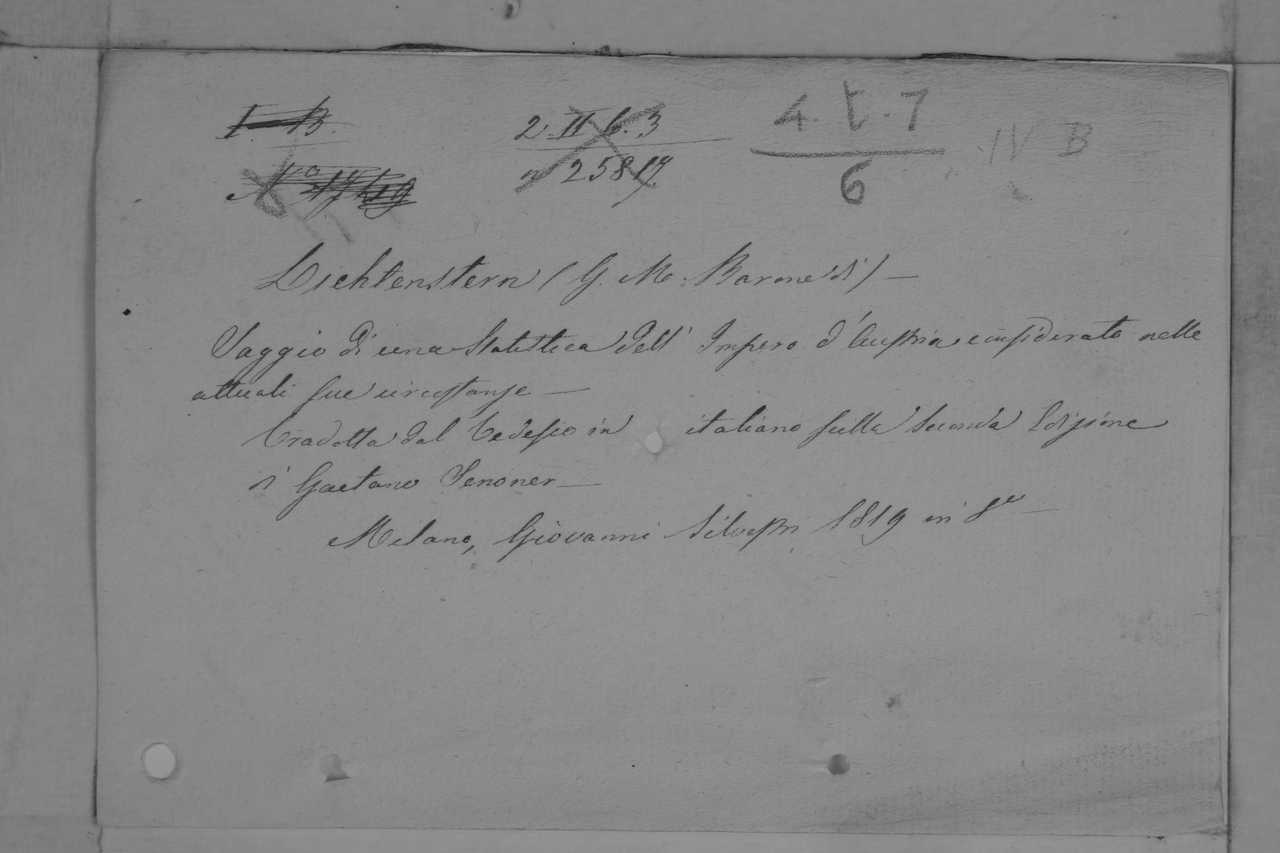 I. B.
2. II. 6. 3
4. t. 7
IV B
n 25817
6
Lichtenstern (G. M. Barone di) —
Saggio di una Statistica dell' Impero d'Austria considerato nelle
attuali sue circostanze —
Tradotta dal Tedesco in italiano sulla seconda Edizione
di Gaetano Senoner —
Milano, Giovanni Silvestri 1819 in 8º —